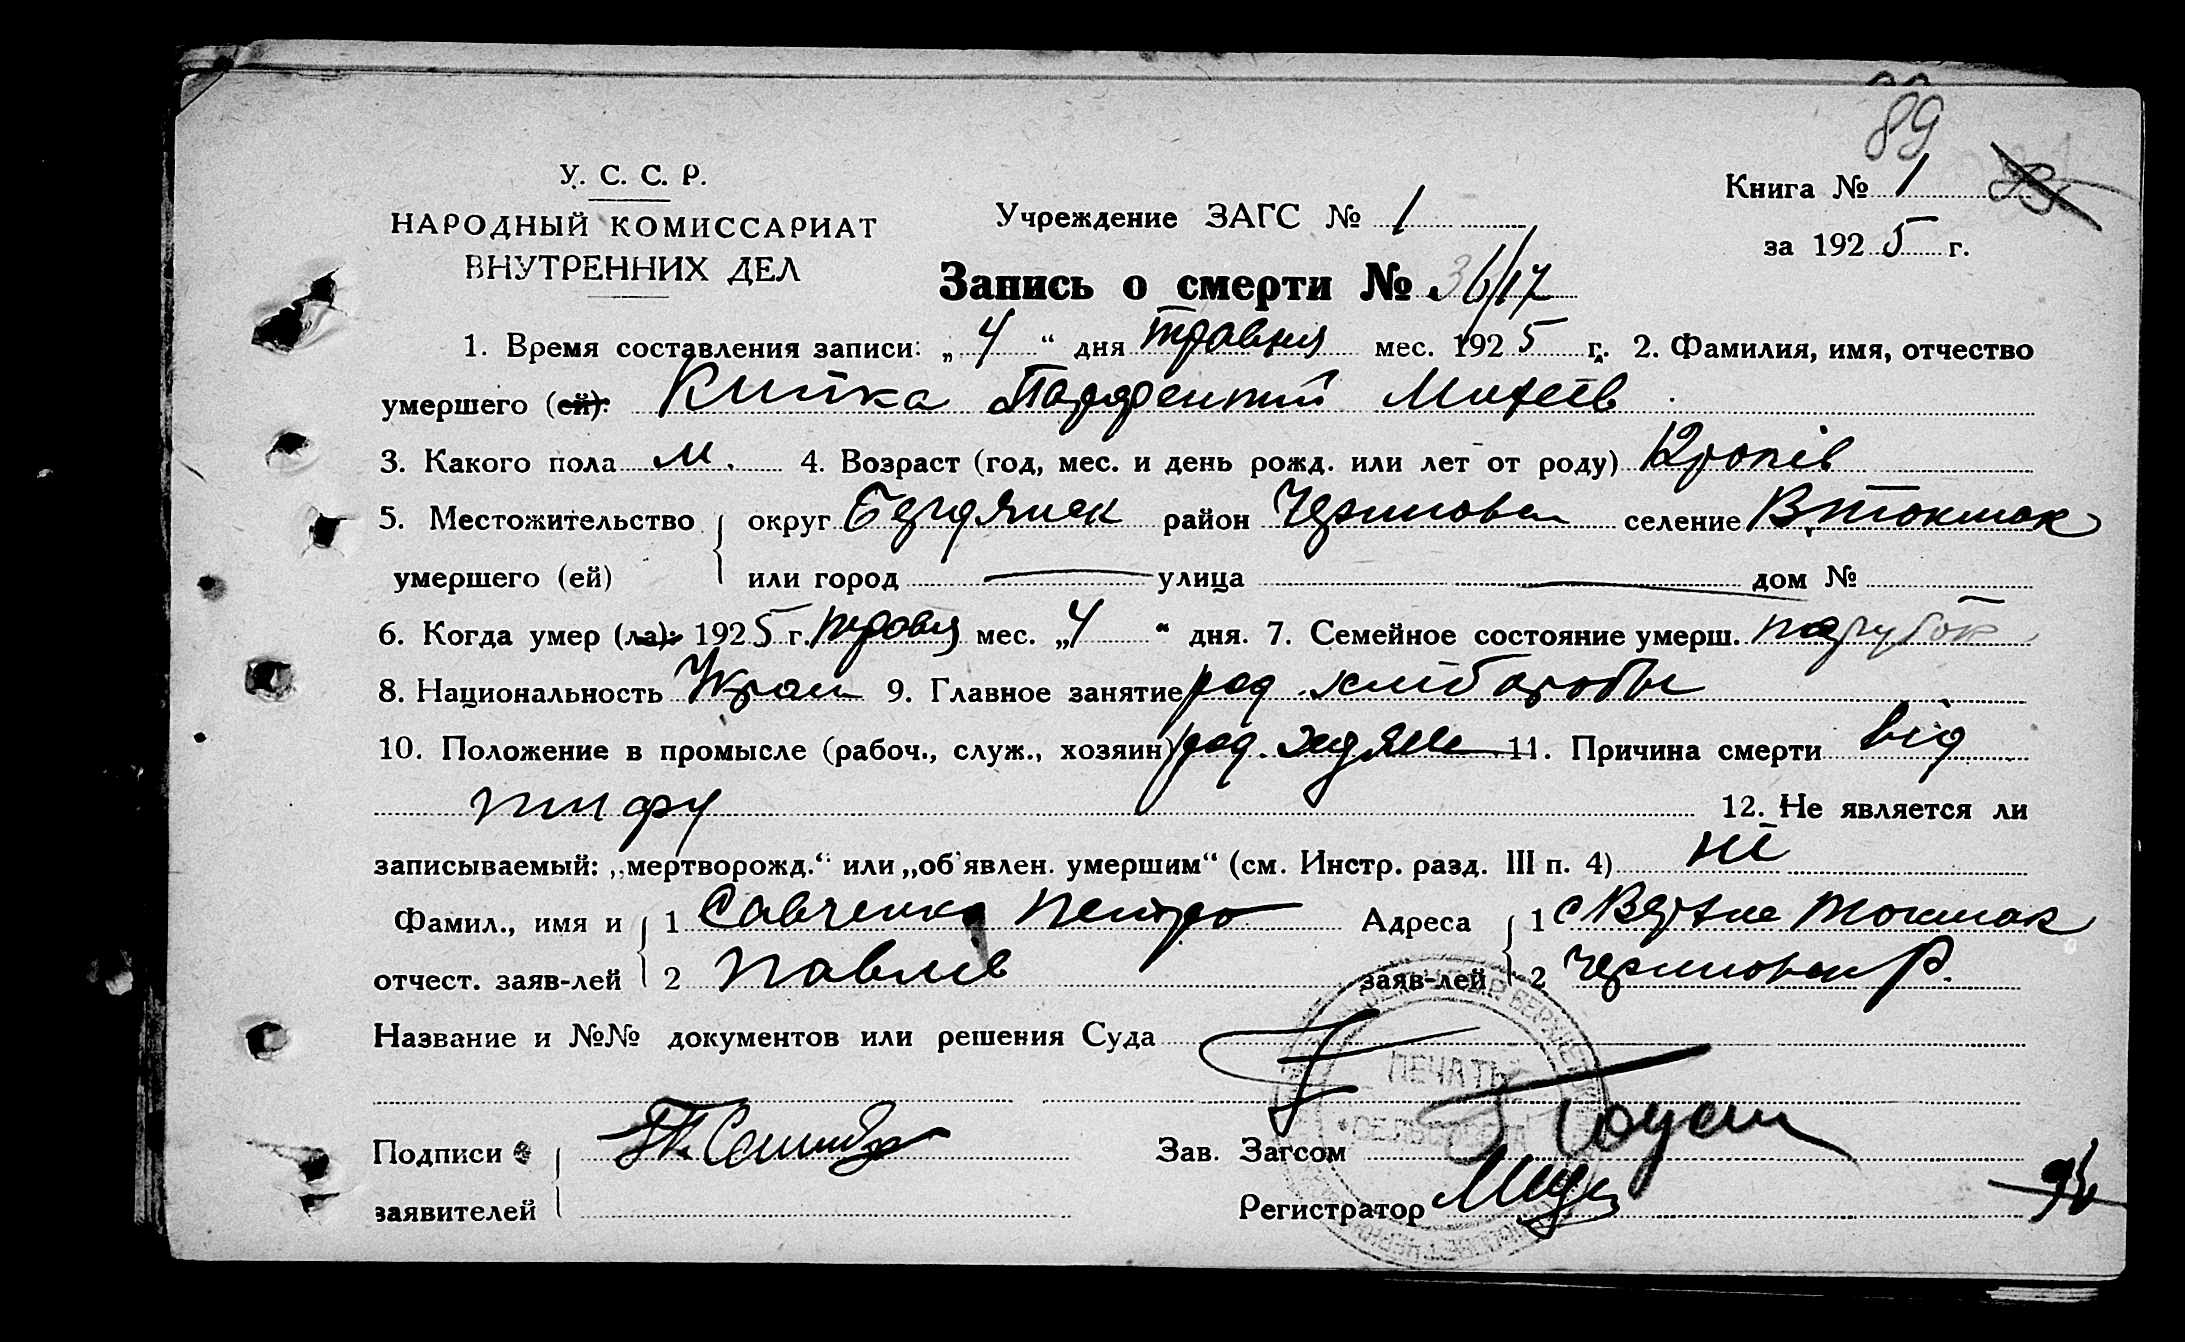 89
У. С. С. Р.
НАРОДНЫЙ КОМИССАРИАТ
ВНУТРЕННИХ ДЕЛ
Учреждение ЗАГС № 1
Книга № 1
за 1925 г.
Запись о смерти № 36/17
1. Время составления записи: „4“ дня травня мес. 1925 г. 2. Фамилия, имя, отчество
умершего (ей): Китка Парфентий Михеїв
3. Какого пола м. 4. Возраст (год, мес. и день рожд. или лет от роду) 12 років
5. Местожительство округ Бердянск район Черниговск селение В. Токмак
умершего (ей) или город улица дом №
6. Когда умер (ла): 1925 г. травня мес. „4“ дня. 7. Семейное состояние умерш. парубок
8. Национальность Украин 9. Главное занятие род. хлібороби
10. Положение в промысле (рабоч., служ., хозяин) род. 11. Причина смерти від
тифу 12. Не является ли
записываемый: „мертворожд.“ или „об'явлен. умершим“ (см. Инстр. разд. III п. 4) ні
Фамил., имя и 1 Савченко Петро Адреса 1 с Верхне Токмак
отчест. заяв-лей 2 Павлів заяв-лей 2 Черниговск Р.
Название и №№ документов или решения Суда
ПЕЧАТЬ
Подписи Зав. Загсом
заявителей Регистратор